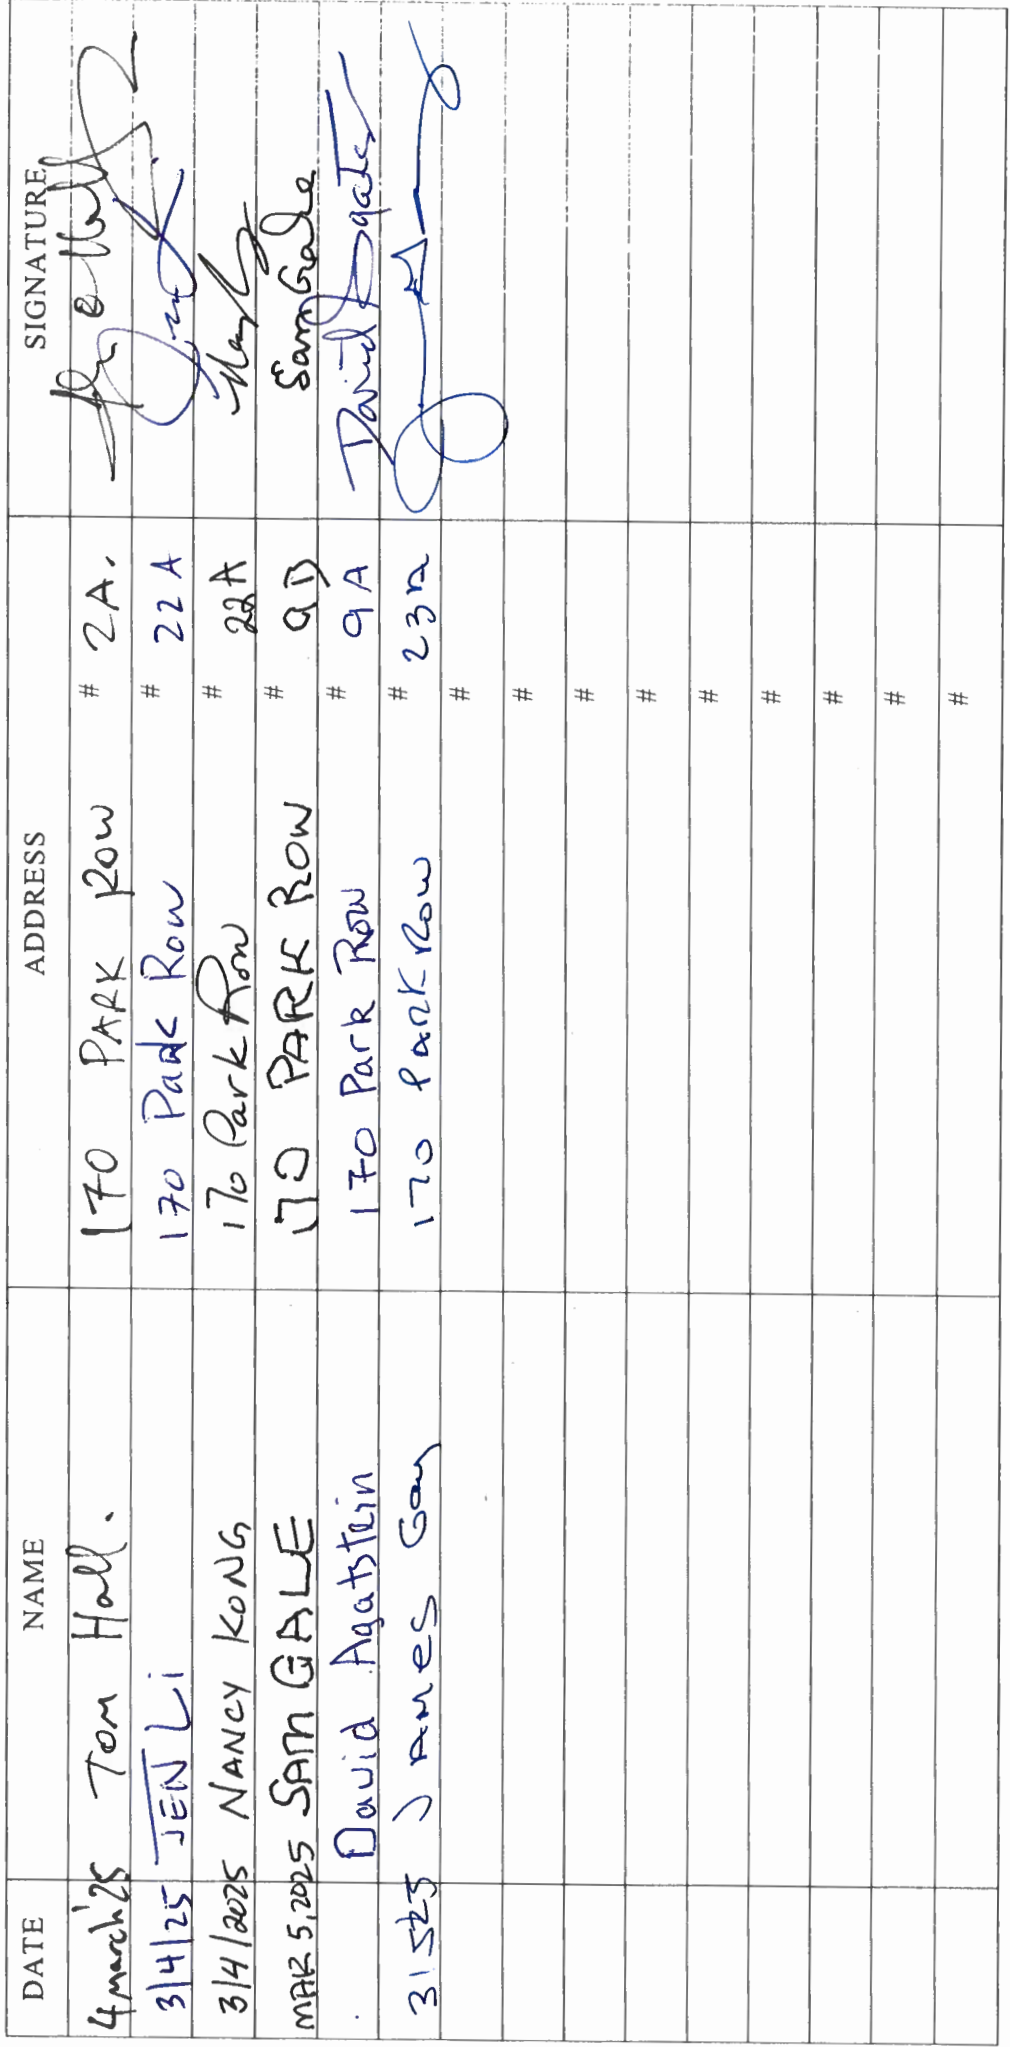 DATE NAME ADDRESS SIGNATURE
4 March '25 Tom Hall. 170 PARK ROW # 2A.
3/4/25 JEN Li 170 Park Row # 22A
3/4/2025 NANCY KONG 170 Park Row # 22A
MAR 5, 2025 SAM GALE 170 PARK ROW # 9D Sam Gale
David Agatstein 170 Park Row # 9A David Agats
JAMES 170 PARK Row #
#
#
#
#
#
#
#
#
#